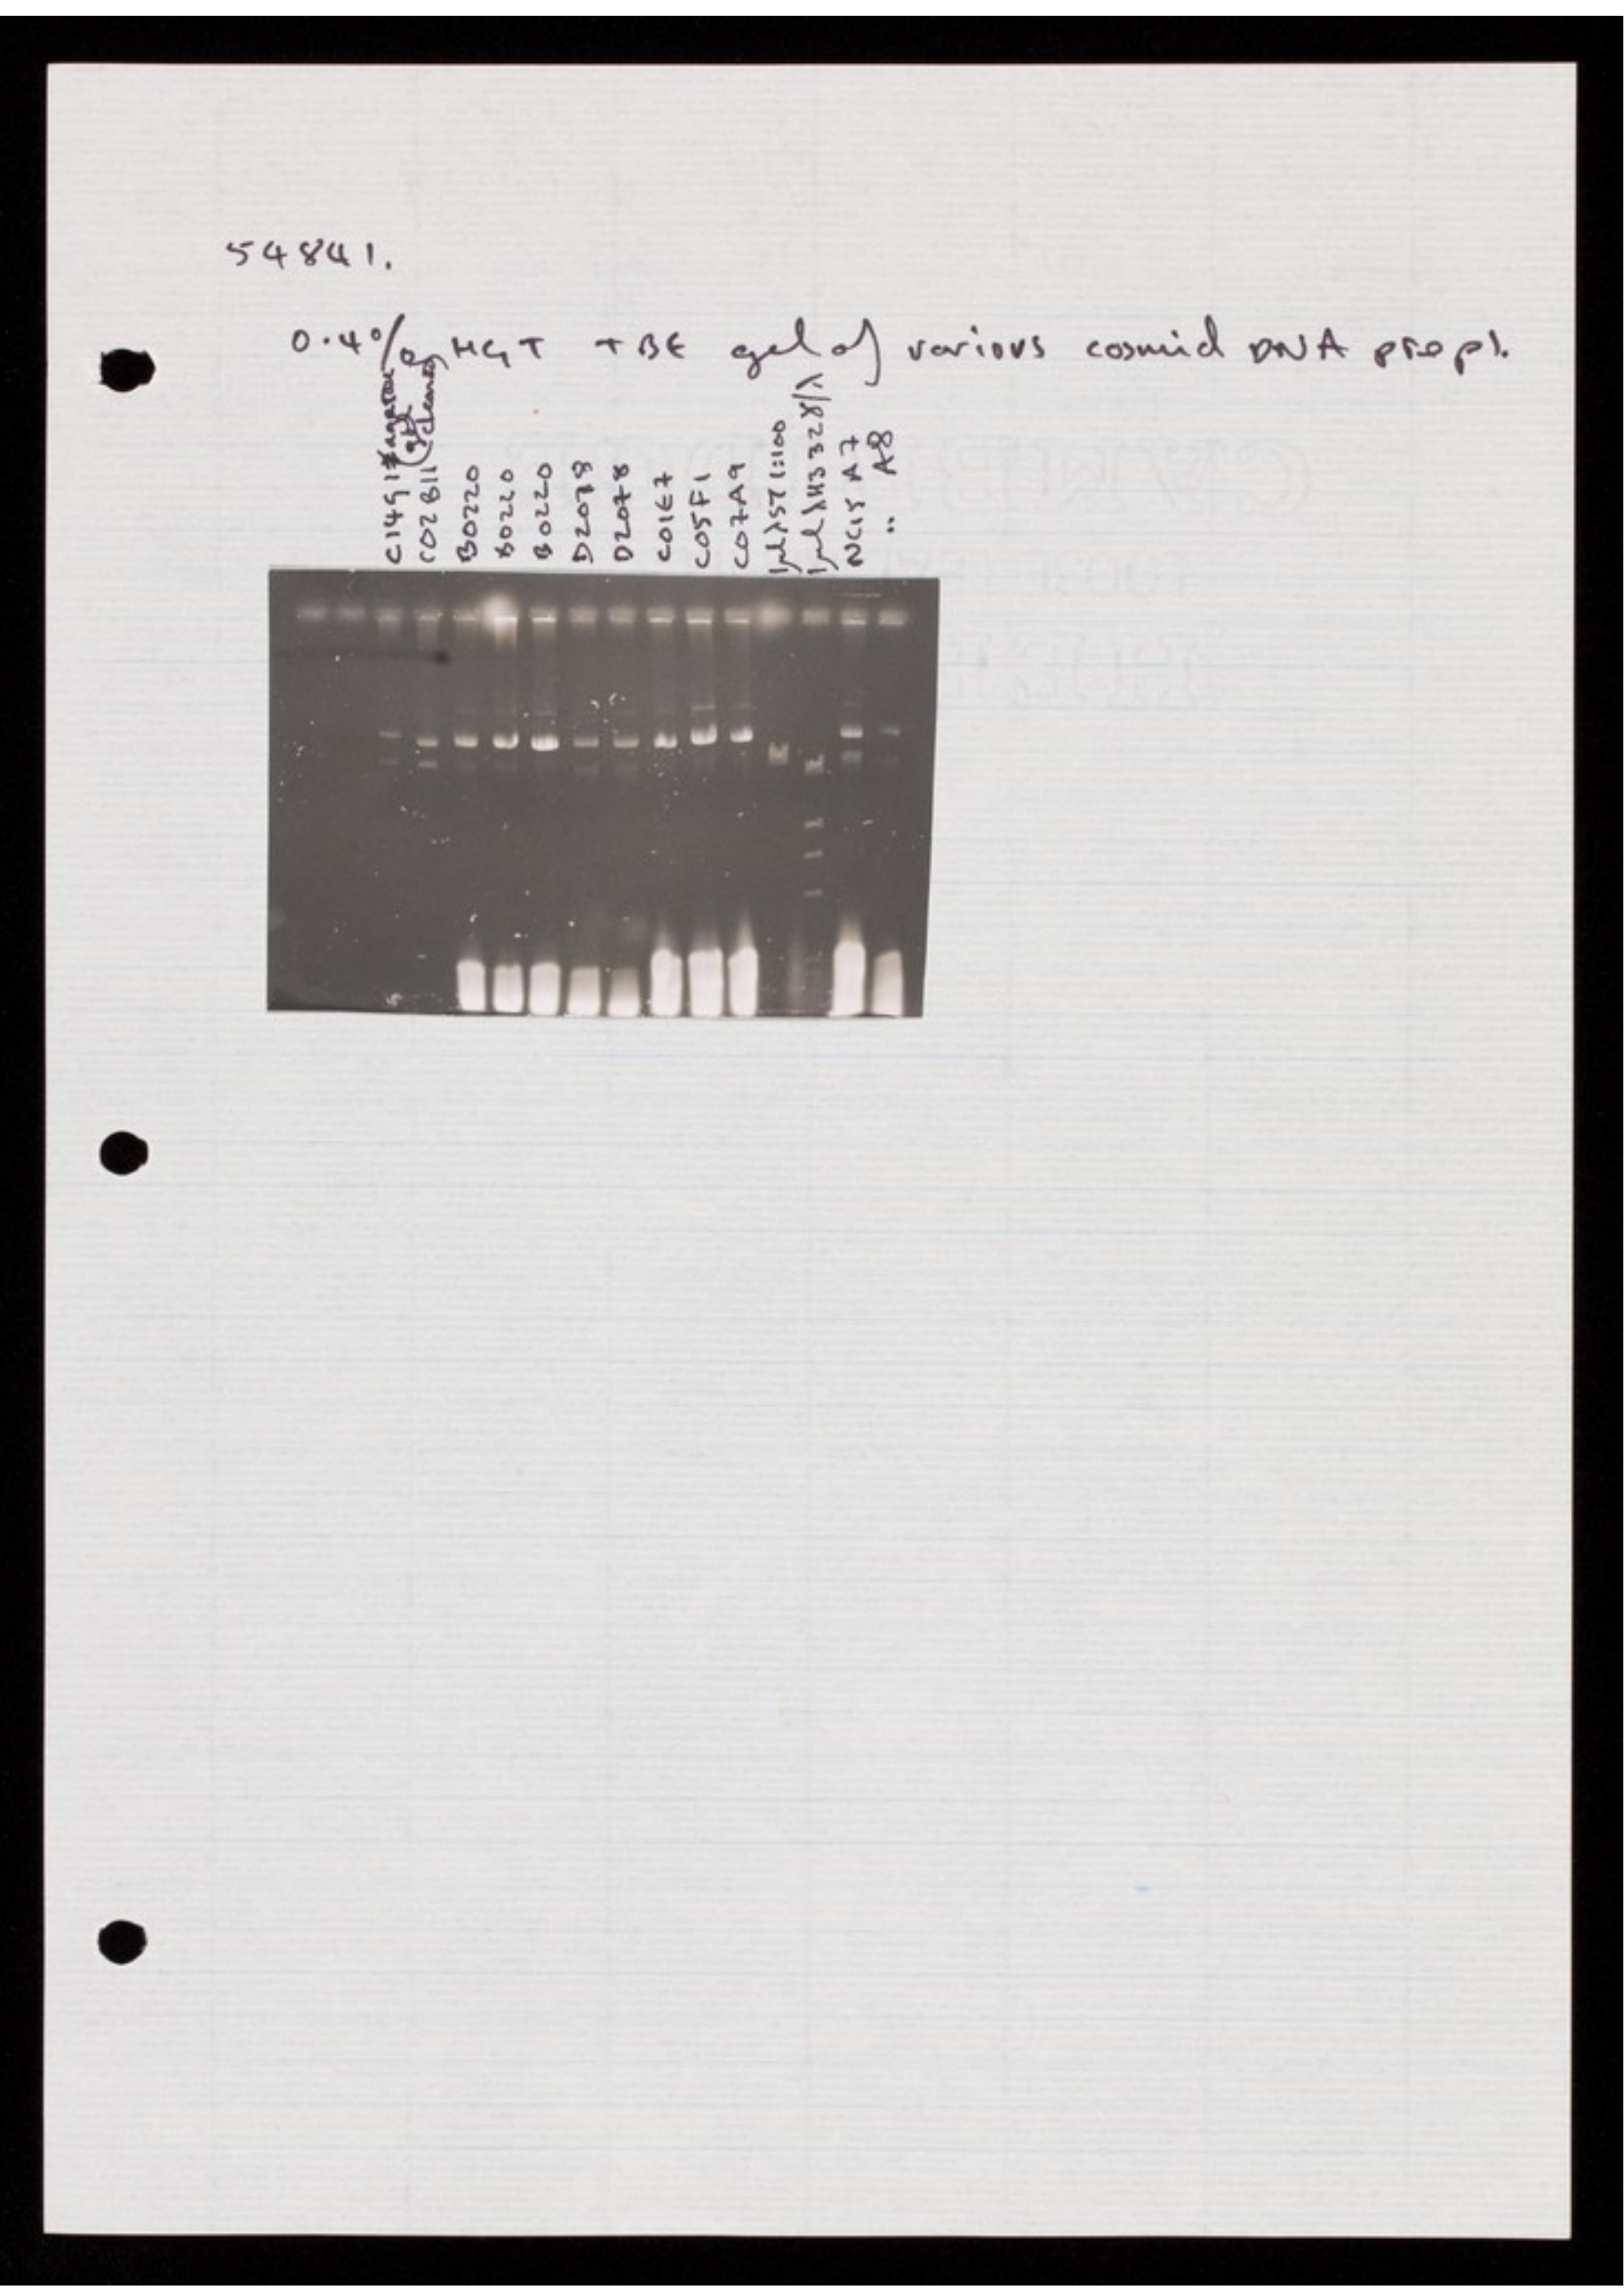 54841.
0.4% HGT TBE gel of various cosmid DNA preps.
C14G1 agarose
C02B11 (gel cleaned)
B0220
B0220
B0220
D2078
D2078
C01E7
C05F1
C07A9
1μl λ57 1:100
1μl λH3 328/λ
NC15 A7
" A8